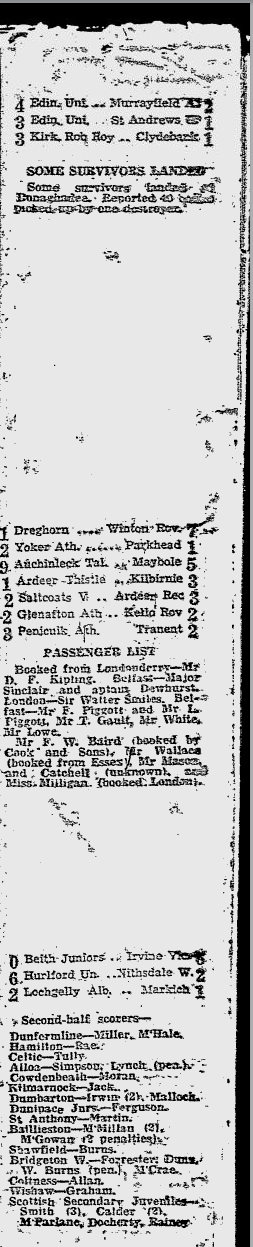 4 Edin. Uni. .. Murrayfield A. 2
3 Edin. Uni. .. St Andrews U. 1
3 Kirk. Rob Roy .. Clydebank 1
SOME SURVIVORS LANDED
Some survivors landed at
Donaghadee. Reported 40 bodies
picked up by one destroyer.
1 Dreghorn .... Winton Rov. 7
2 Yoker Ath. ...... Parkhead 1
9 Auchinleck Tal. .. Maybole 5
1 Ardeer Thistle .. Kilbirnie 3
2 Saltcoats V. .. Ardeer Rec 3
2 Glenafton Ath .. Kello Rov 2
3 Penicuik Ath. Tranent 2
PASSENGER LIST
Booked from Londonderry—Mr
D. F. Kipling. Belfast—Major
Sinclair and Dewhurst.
London—Sir Walter Smiles. Bel-
fast—Mr F. Piggott and Mr L.
Piggott, Mr T. Gault, Mr White,
Mr Lowe.
Mr F. W. Baird (booked by
Cook and Sons), Mr Wallace
(booked from Essex), Mr Mason,
and Catchell (unknown), and
Miss Milligan (booked London).
0 Beith Juniors .. Irvine Vics
6 Hurlford Un. .. Nithsdale W. 2
2 Lochgelly Alb. .. Markich 1
Second-half scorers—
Dunfermline—Miller, M'Hale.
Hamilton—Rae.
Celtic—Tully.
Alloa—Simpson, Lynch (pen.).
Cowdenbeath—Moran.
Kilmarnock—Jack.
Dumbarton—Irwin (2), Malloch.
Dunipace Jnrs.—Ferguson.
St Anthony—Martin.
Baillieston—M'Millan (2),
M'Gowan (2 penalties).
Shawfield—Burns.
Bridgeton W.—Forrester, Dunn,
W. Burns (pen.), M'Crae.
Coltness—Allan.
Wishaw—Graham.
Scottish Secondary Juveniles—
Smith (3), Calder (2),
M'Parlane, Docherty, Rainey